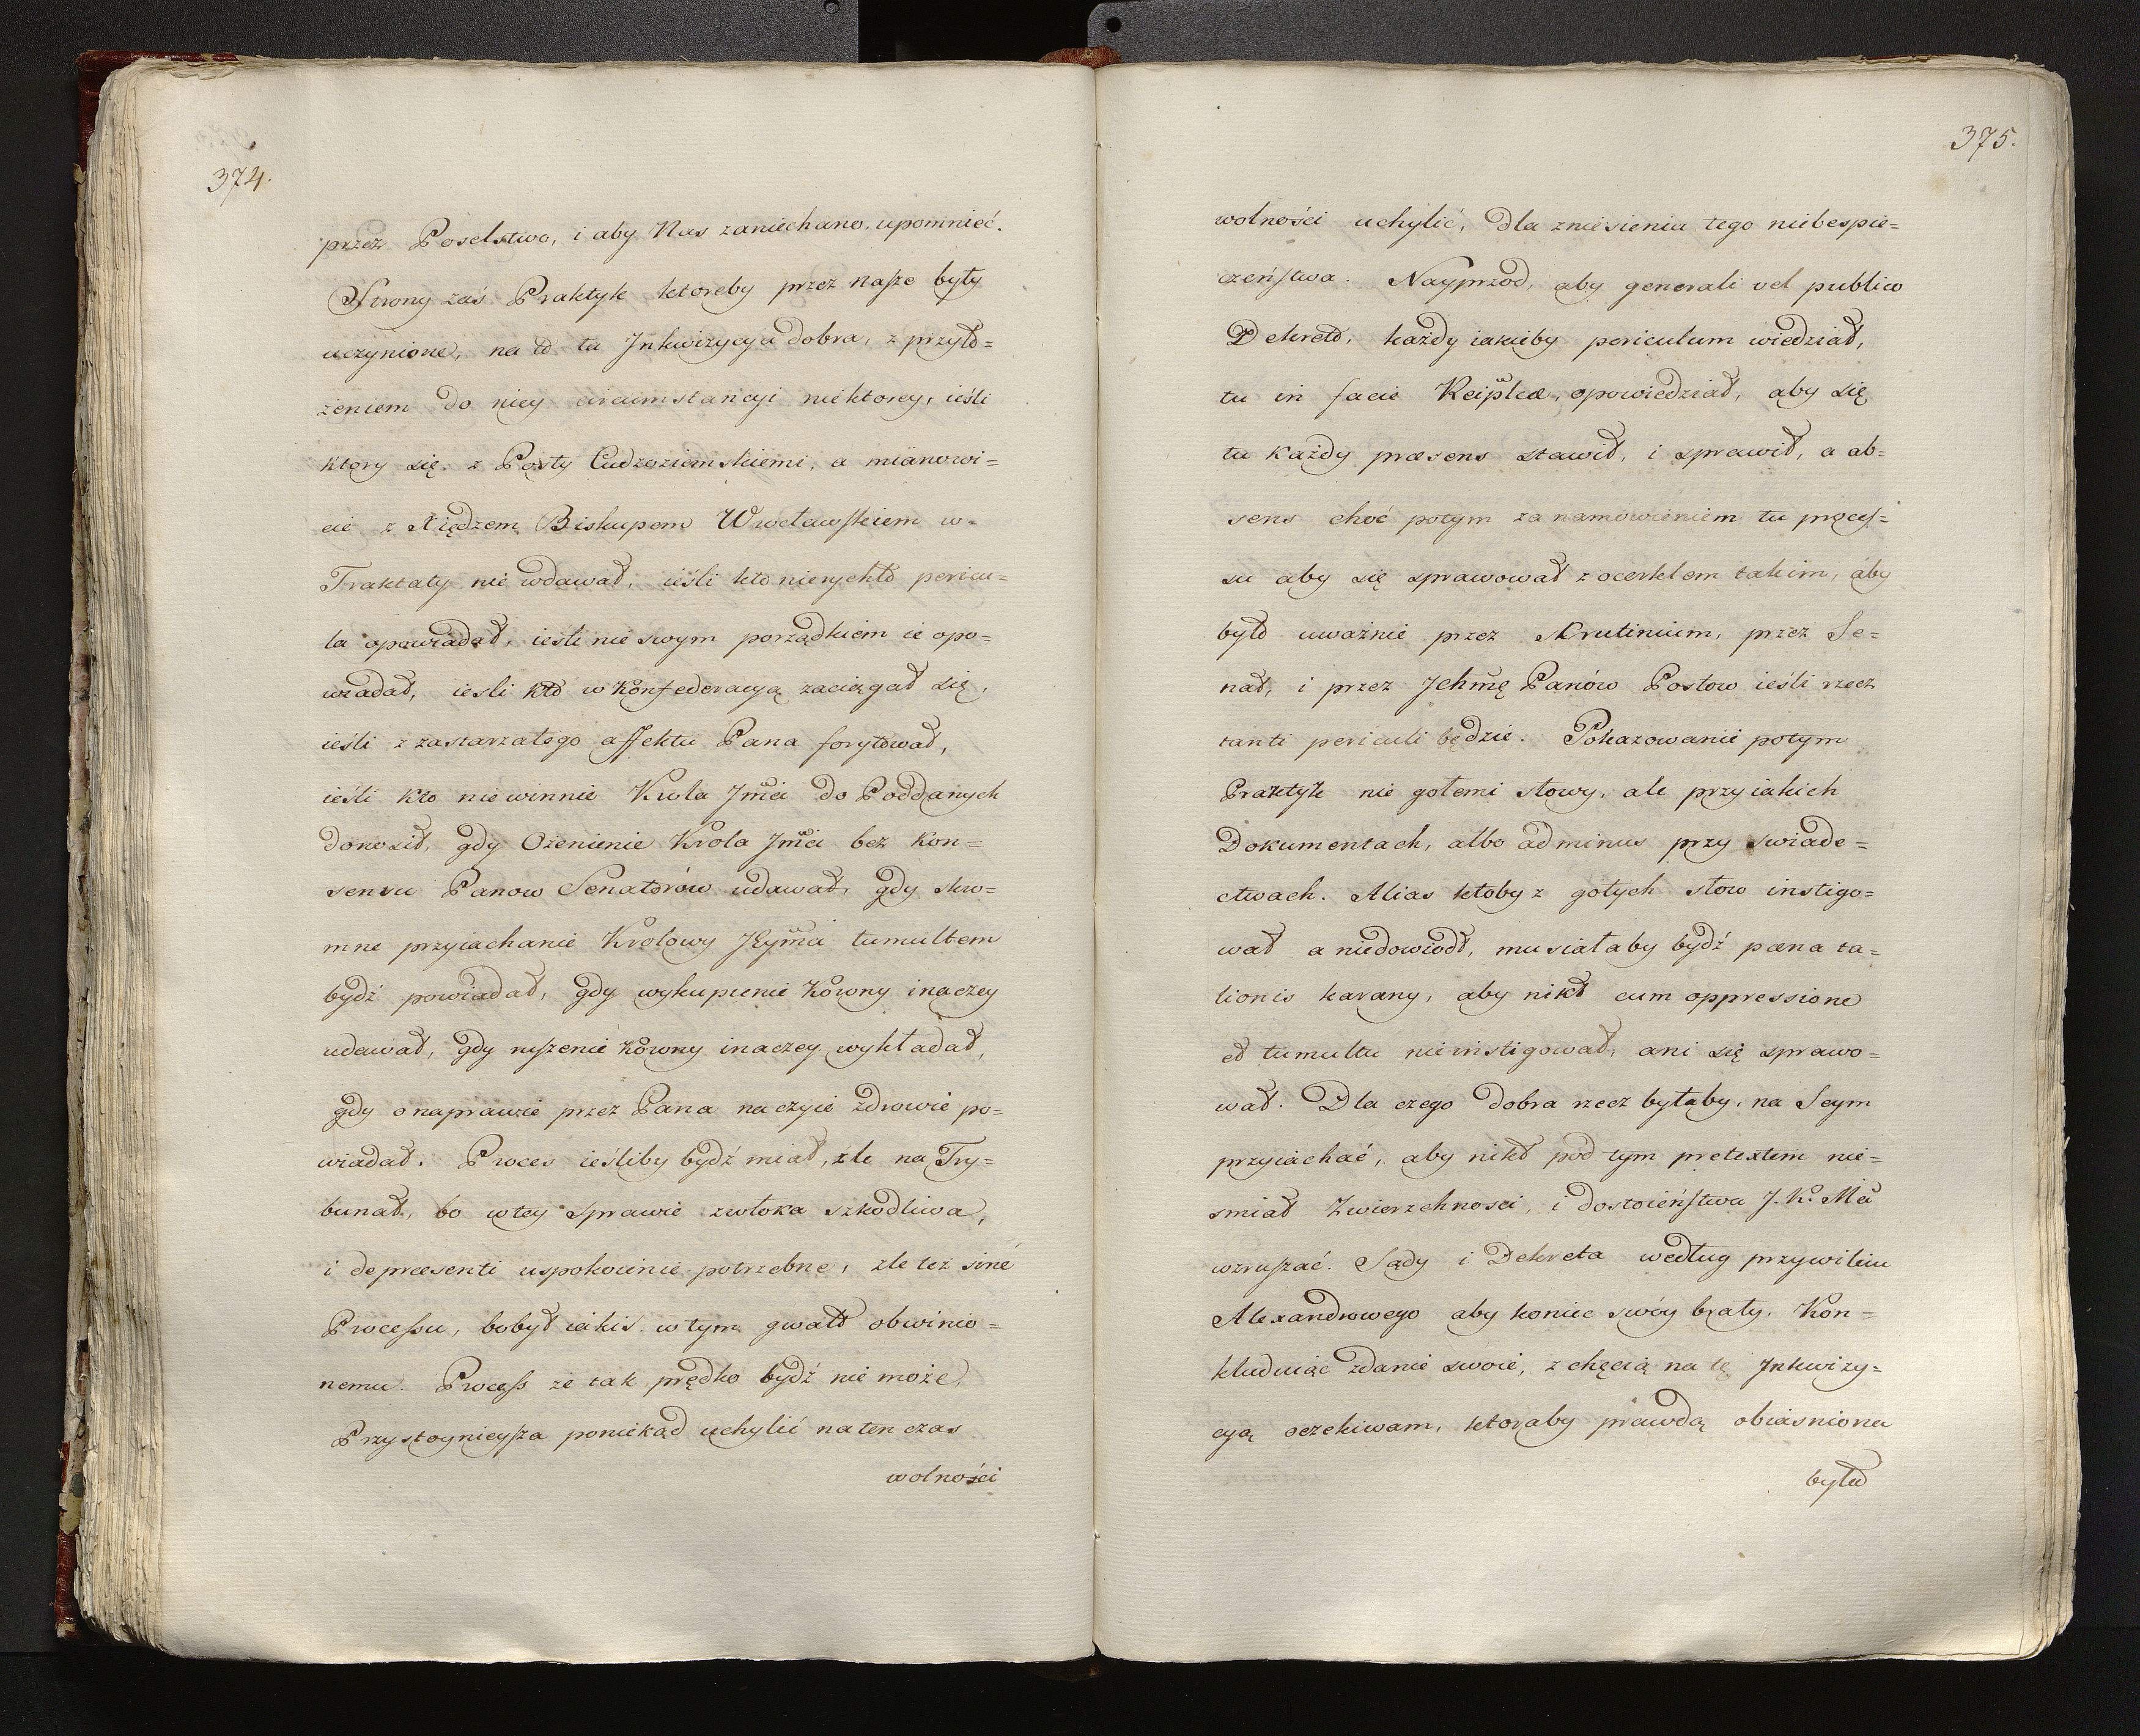 374.
przez Poselstwo, i aby Nas zaniechano upomnieć.
Strony zaś Praktyk ktoreby przez nasze były
uczynione, na to ta Jnkwizycya dobra, z przyło=
żeniem do niey circumstancyi niektorey, ieśli
ktory się z Posły Cudzoziemskiemi, a mianowi=
cie z Xiędzem Biskupem Wrocławskiem w=
Traktaty nie wdawał, ieśli kto nierychło pericu=
la opowiadał, ieśli nie swym porządkiem ie opo=
wiadał, iesli kto w Konfederacyą zaciągał się,
ieśli z zastarzałego affektu Pana forytował,
ieśli kto niewinnie Krola Jmci do Poddanych
donosił, gdy Ożenienie Krola Jmci bez Kon=
sensu Panow Senatorów udawał, gdy skro=
mne przyiachanie Krolowy JEymci tumultem
bydź powiadał, gdy wykupienie Korony inaczey
udawał, gdy ruszenie Korony inaczey wykładał,
gdy o naprawie przez Pana na czyie zdrowie po=
wiadał. Proces ieśliby bydź miał, źle na Try=
bunał, bo w tey sprawie zwłoka szkodliwa,
i de præsenti uspokoienie potrzebne, źle też sine
Processu, bo był iakis w tym gwałt obwinio=
nemu. Process że tak prędko bydź nie może,
Przystoynieysza poniekąd uchylić na ten czas
wolności
375.
wolności uchylić, dla zniesienia tego niebespie=
czeństwa. Nayprzod, aby generali vel publico
Dekreto, każdy iakieby periculum wiedział,
tu in facie Reiplcæ, opowiedział, aby się
tu każdy præsens stawił, i sprawił, a ab=
sens choć potym za namowieniem tu proces=
su aby się sprawował z ocerklem takim, aby
było uważnie przez Skrutinium, przez Se=
nat, i przez Jchmę Panów Posłow ieśli rzecz
tanti periculi będzie. Pokazowanie potym
Praktyk nie gołemi słowy, ale przy iakich
Dokumentach, albo ad minus przy swiade=
ctwach. Alias ktoby z gołych słow instigo=
wał a niedowiodł, musiałaby bydź pæna ta=
lionis karany, aby nikt cum oppressione
et tumultu nie instigował, ani się sprawo=
wał. Dla czego dobra rzecz byłaby, na Seym
przyiachać, aby nikt pod tym pretextem nie=
smiał Zwierzchnosci, i dostoieństwa J. K. Mci
wzruszać. Sądy i Dekreta według przywileiu
Alexandrowego aby koniec swóy brały. Kon=
kluduiąc zdanie swoie, z chęcią na tę Jnkwizy=
cyą oczekiwam, ktoraby prawdą obiasniona
była